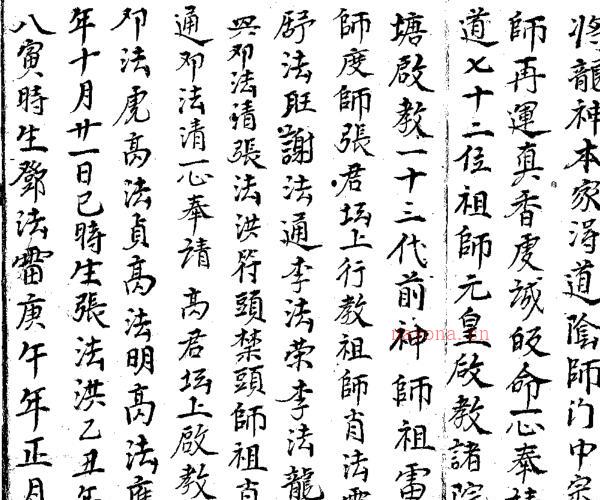 將龍神本家淂道陰師门中宗
師再運真香虔誠皈命一心奉
道七十二位祖師元皇啟教諸
塘啟教一十三代前神師祖雷
師度師張君坛上行教祖師肖法
舒法旺謝法通李法荣李法龍
興邓法清張法洪符頭禁頭師祖肖
通邓法清一心奉請高君坛上啟教
邓法虎高法貞高法明高法
年十月廿一日巳時生張法洪乙丑年
八寅時生鄧法雷庚午年正月